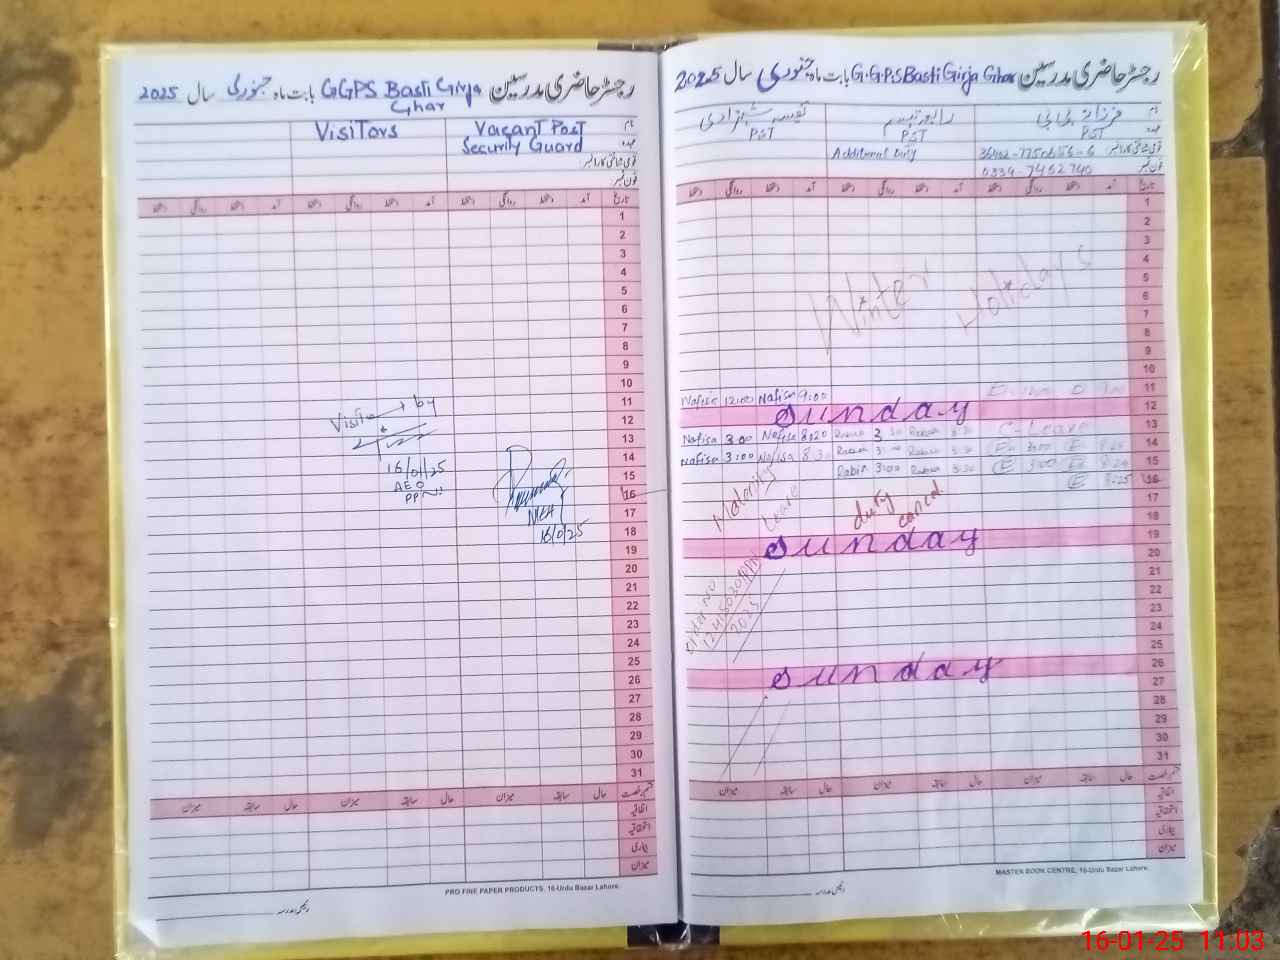 رجسٹر حاضری مدرسین GGPS Basti Girja Ghar بابت ماہ جنوری سال 2025
Visitors
Vacant Post
Security Guard
نام
عہدہ
قومی شناختی کارڈ نمبر
فون نمبر
تاریخ آمد دستخط روانگی دستخط آمد دستخط روانگی دستخط آمد دستخط روانگی دستخط
1
2
3
4
5
6
7
8
9
10
11
12
13
14
15
16
17
18
19
20
21
22
23
24
25
26
27
28
29
30
31
Visit by
16/01/25
AEO
PP
MEA
16/01/25
قسم رخصت حال سابقہ میزان حال سابقہ میزان حال سابقہ میزان
اتفاقیہ
استحقاقیہ
بیماری
میزان
PRO FINE PAPER PRODUCTS, 16-Urdu Bazar Lahore.
رجسٹر حاضری مدرسین G.G.P.S Basti Girja Ghar بابت ماہ جنوری سال 2025
نام فرزانہ بی بی رابعہ تبسم نفیسہ شہزادی
عہدہ PST PST PST
قومی شناختی کارڈ نمبر Additional Duty
فون نمبر 0334-7452740
تاریخ آمد دستخط روانگی دستخط آمد دستخط روانگی دستخط آمد دستخط روانگی دستخط
1
2
3
4
5
6
7
8
9
10
Winter Holidays
11 Nafisa 12:00 Nafisa 9:00
12 Sunday
13 Nafisa 3:00 Nafisa 8:20 C-Leave
14 Nafisa 3:00 Nafisa 8:30 Rabia 3:00 Rabia
15 Rabia 3:00 Rabia
16 8:25
17
18
Maternity Leave
duty cancel
19 Sunday
20
21
22
23
24
25
Order No
2025
26 Sunday
27
28
29
30
31
قسم رخصت حال سابقہ میزان حال سابقہ میزان حال سابقہ میزان
اتفاقیہ
استحقاقیہ
بیماری
میزان
MASTER BOOK CENTRE, 16-Urdu Bazar Lahore.
16-01-25 11:03